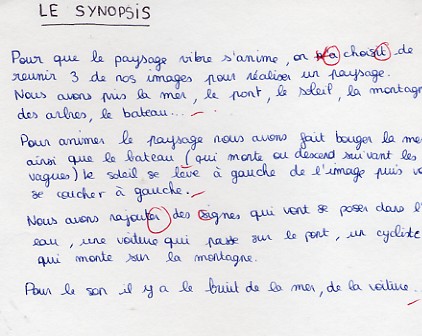 LE SYNOPSIS
Pour que le paysage vibre s'anime, on a choisit de
reunir 3 de nos images pour réaliser un paysage.
Nous avons pris la mer, le pont, le soleil, la montagn
des arbres, le bateau...
Pour animer le paysage nous avons fait bouger la me
ainsi que le bateau (qui monte ou descend suivant les
vagues) le soleil se lève à gauche de l'image puis v
se coucher à gauche.
Nous avons rajouter des signes qui vont se poser dans l'
eau, une voiture qui passe sur le pont, un cycliste
qui monte sur la montagne.
Pour le son il y a le bruit de la mer, de la voiture..